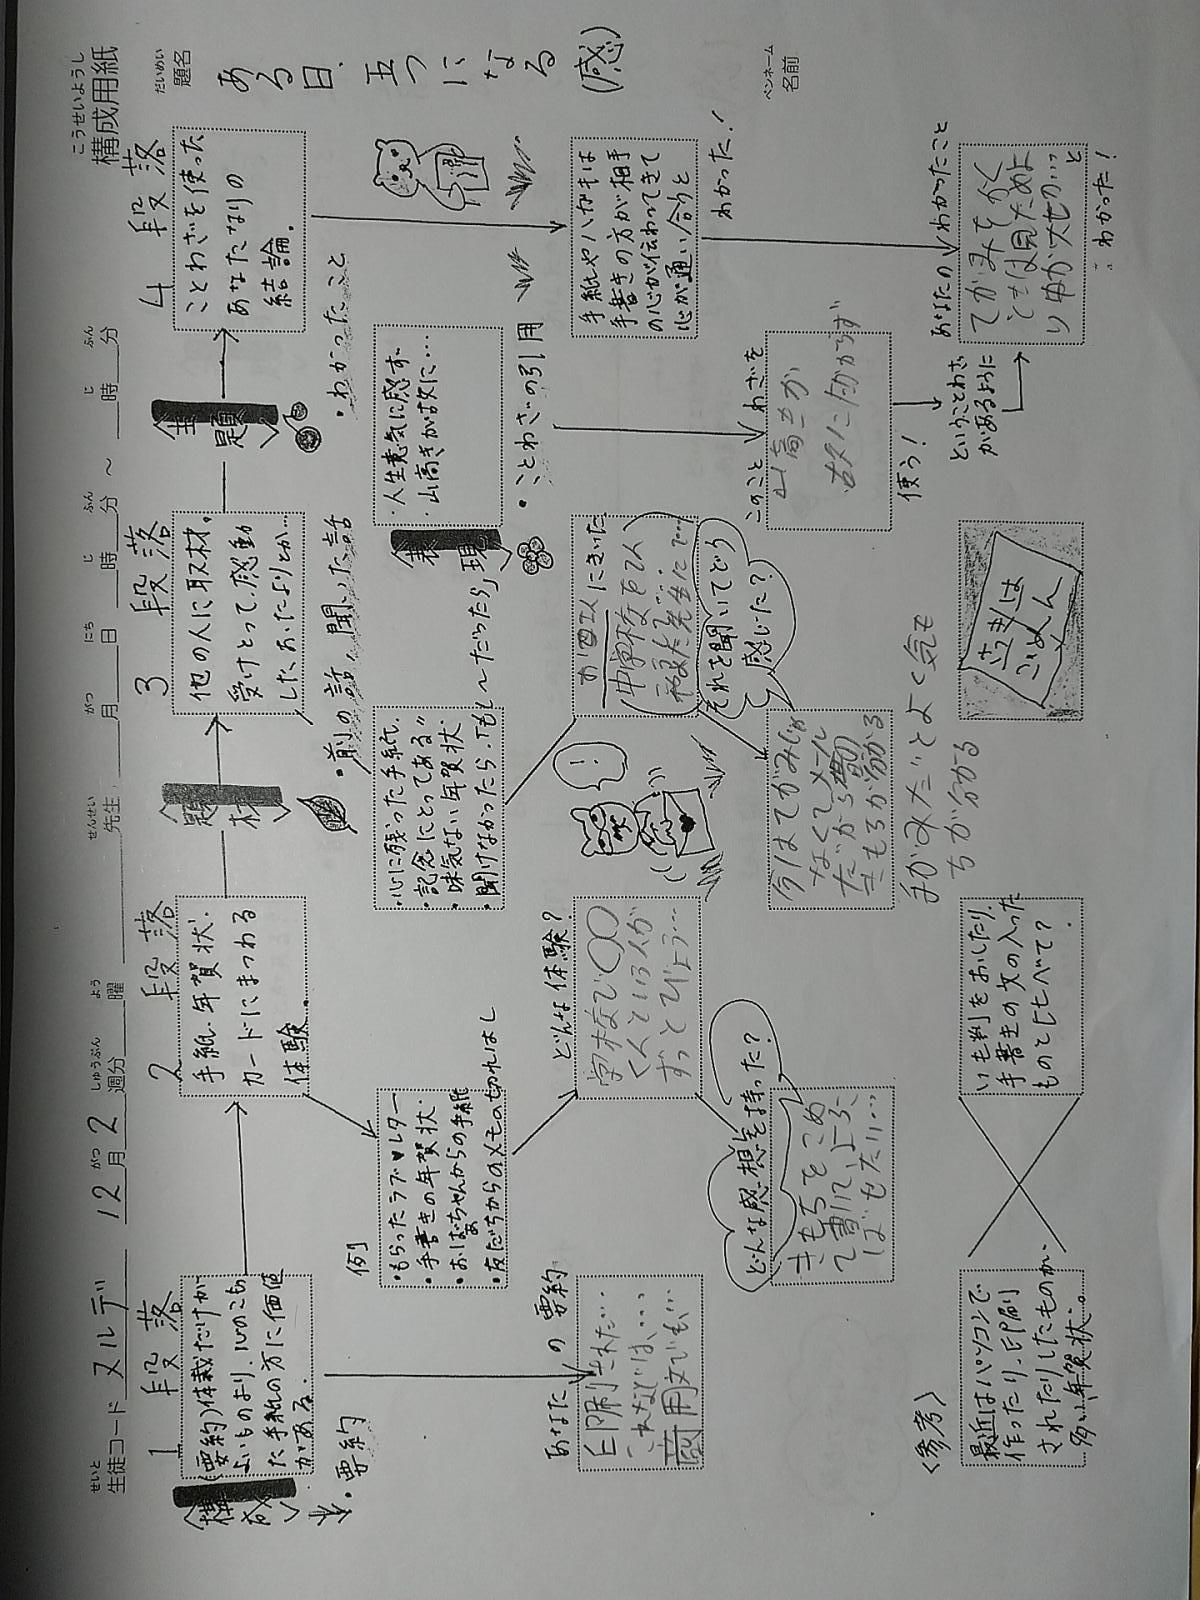 こうせいようし
構成用紙
だいめい
題名
ある日、五つになる
(感)
ペンネーム
名前
せいと
生徒コード ヌルデ
12月2週分
がつ
しゅうぶん
よう
曜
せんせい
先生
がつ
月
にち
日
じ
時
ふん
分
～
じ
時
ふん
分
1段落
(要約)体裁だけが
よいものより、心のこもっ
た手紙の方に価値
がある。
構成
・要約
あなたの要約
印刷された…
これなどは、…
2段落
手紙、年賀状、
カードにまつわる
体験。
例
・もらったラブ♥レター
・手書きの年賀状
・おばあちゃんからの手紙
・友だちからのメモの切れはし
どんな体験?
学校で〇〇
くんという人が
ずっとびょう…
どんな感想を持った?
きもちをこめ
題材
3段落
他の人に取材。
受けとって感動
した、おたよりとか…
・前の話、聞いた話
・心に残った手紙
・"記念にとってある"
・味気ない年賀状
・聞けなかったら、「もし～だったら」
お母さんにきいた
それを聞いてどう
感じた?
今はてがみじゃ
なくてメール
だから
きもちが分かる
手がみだとよく気も
ちが分かる
表現
・人生意気に感ず、
・山高きが故に…
・ことわざの引用
このことわざを
山高きが
故に
使う!
ということわざ
があるように
主題
4段落
ことわざを使った
あなたなりの
結論。
・わかったこと
手紙やハガキは
手書きの方が相手
の心が伝わってきて
心が通い合うと
わかった!
あなたのわかったこと
てがみをかく
ときは見ためよ
り中が大せつ…と
わかった!
<参考>
最近はパソコンで
作ったり、印刷
されたりしたものが、
多い、年賀状…。
いも判をおしたり、
手書きの文の入った
ものとくらべて?
落書きは
ごめん